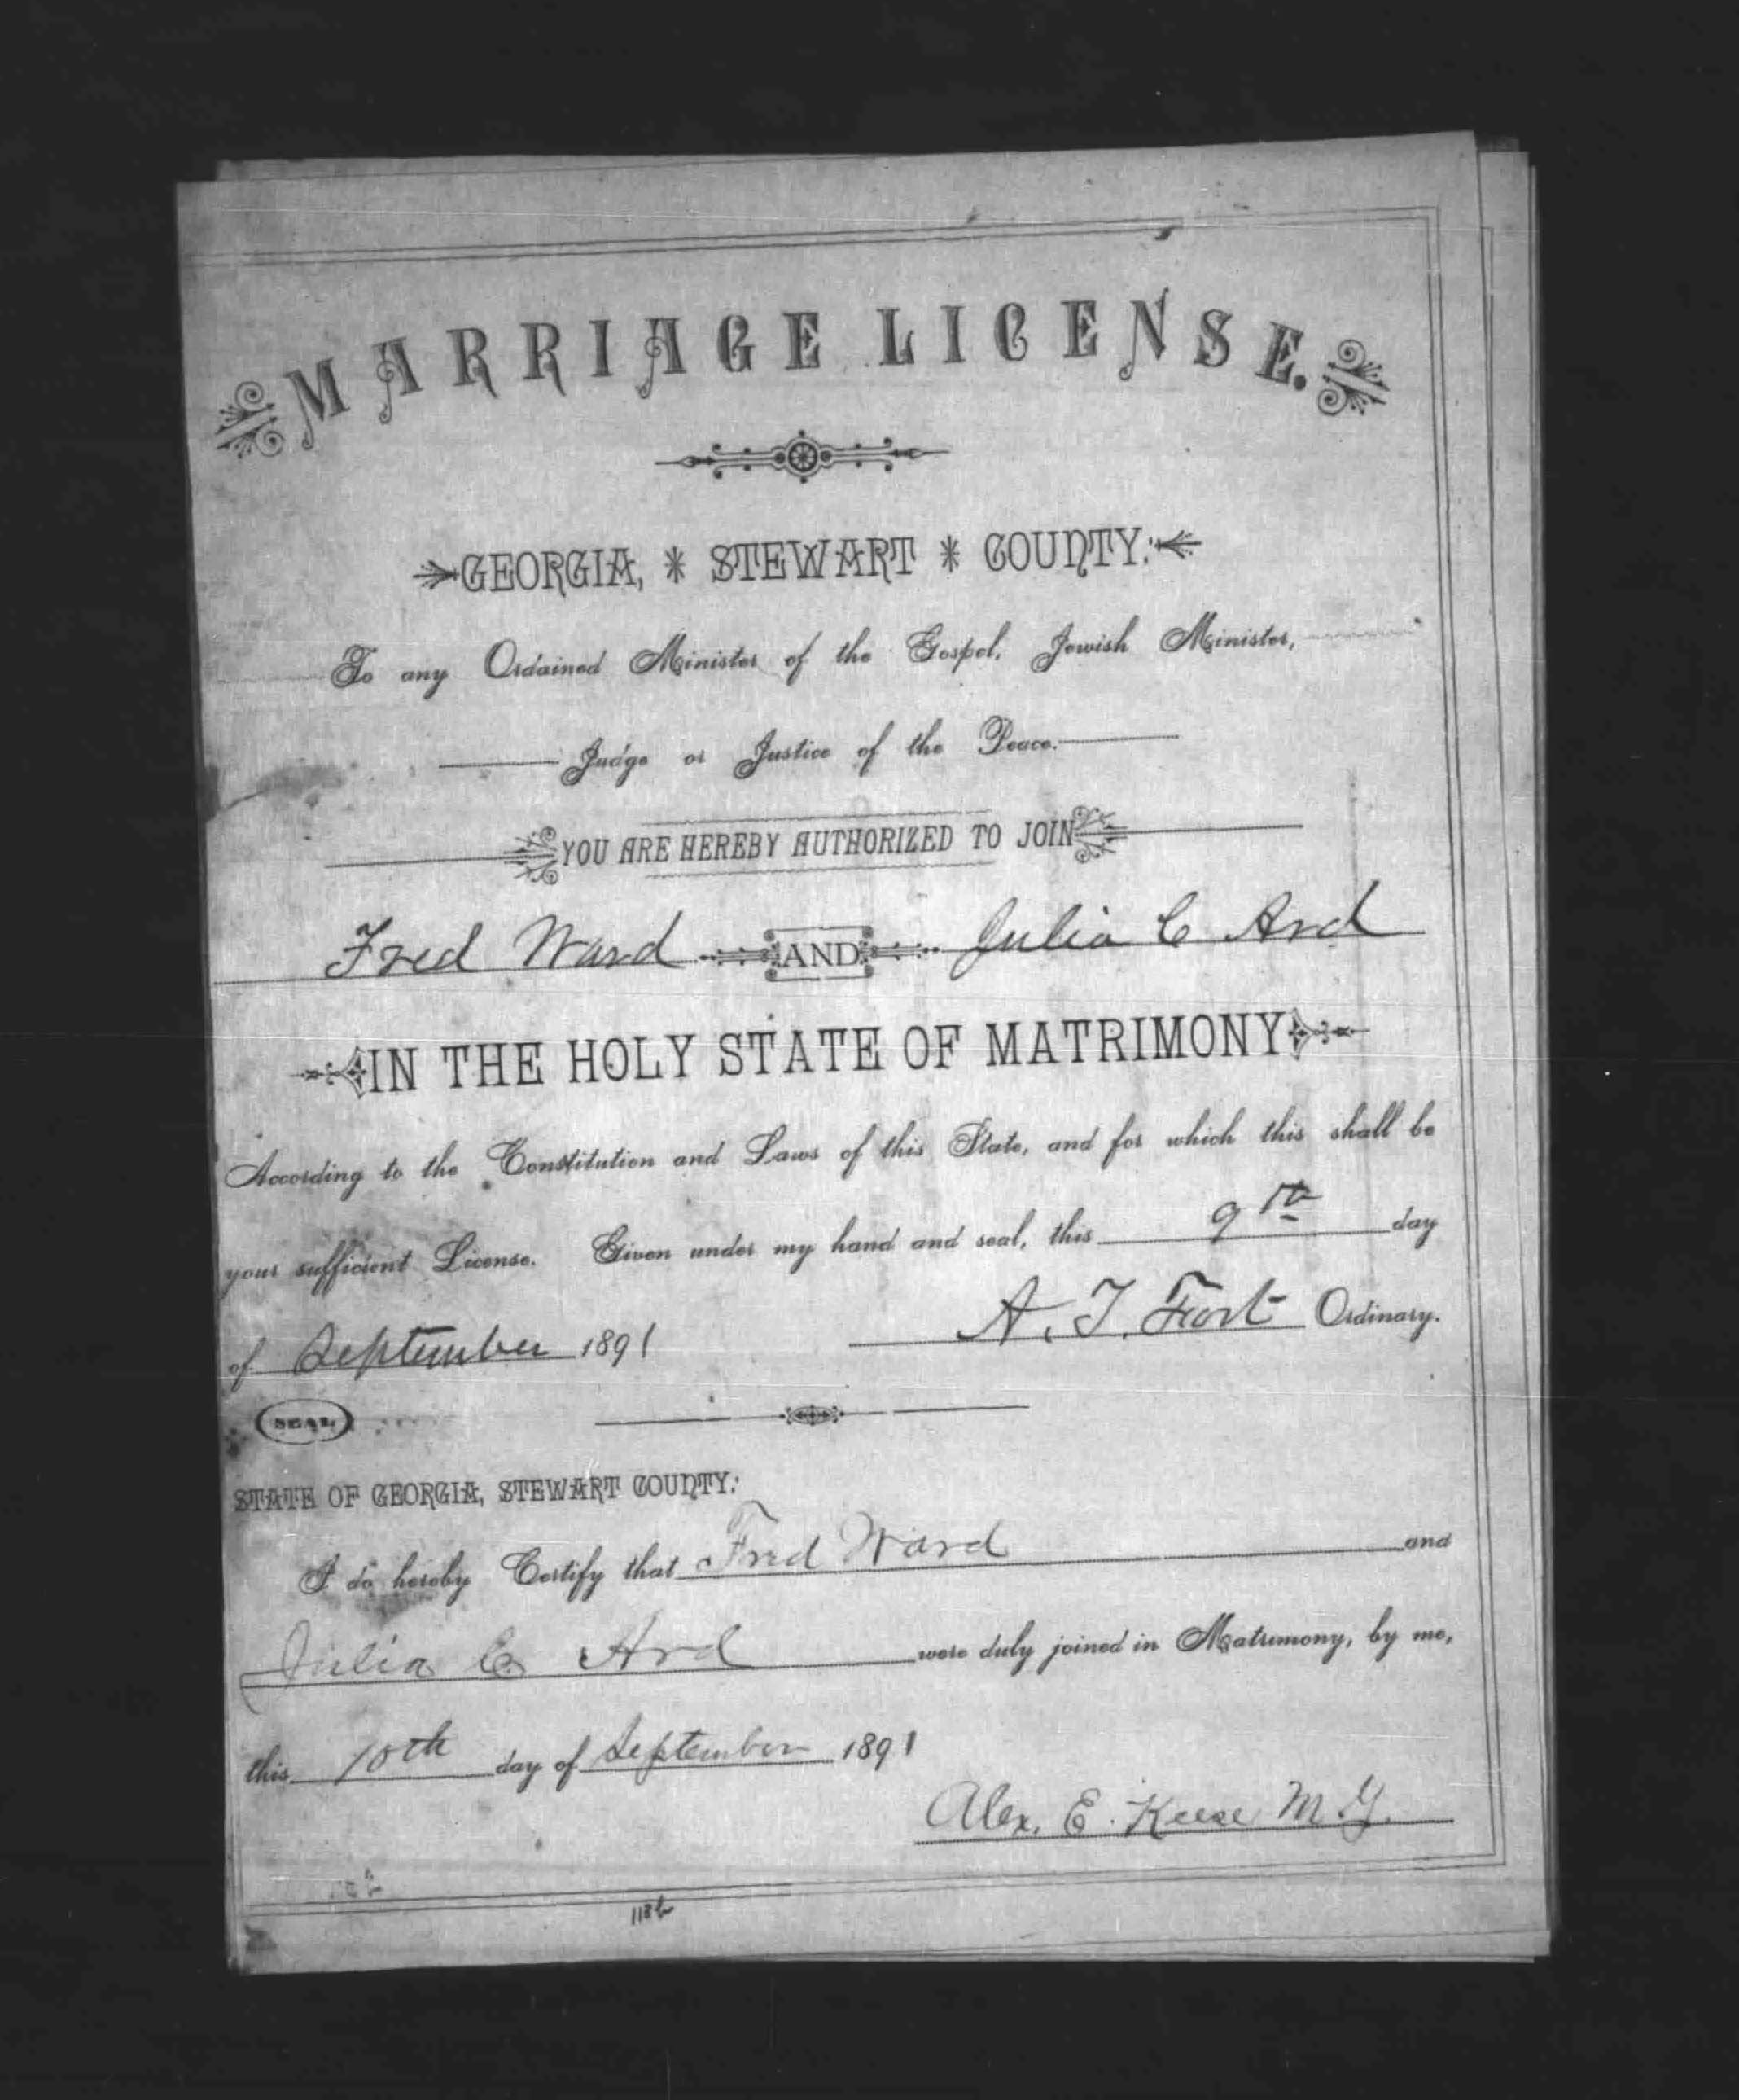 MARRIAGE LICENSE.
GEORGIA, * STEWART * COUNTY:
To any Ordained Minister of the Gospel, Jewish Minister,
Judge or Justice of the Peace.
YOU ARE HEREBY AUTHORIZED TO JOIN
Fred Ward AND Julia C Ard
IN THE HOLY STATE OF MATRIMONY
According to the Constitution and Laws of this State, and for which this shall be
your sufficient License. Given under my hand and seal, this 9th day
of September 1891 A. T. Fort Ordinary.
SEAL
STATE OF GEORGIA, STEWART COUNTY:
I do hereby Certify that Fred Ward and
Julia C Ard were duly joined in Matrimony, by me,
this 10th day of September 1891
Alex. E. Keese M. G.